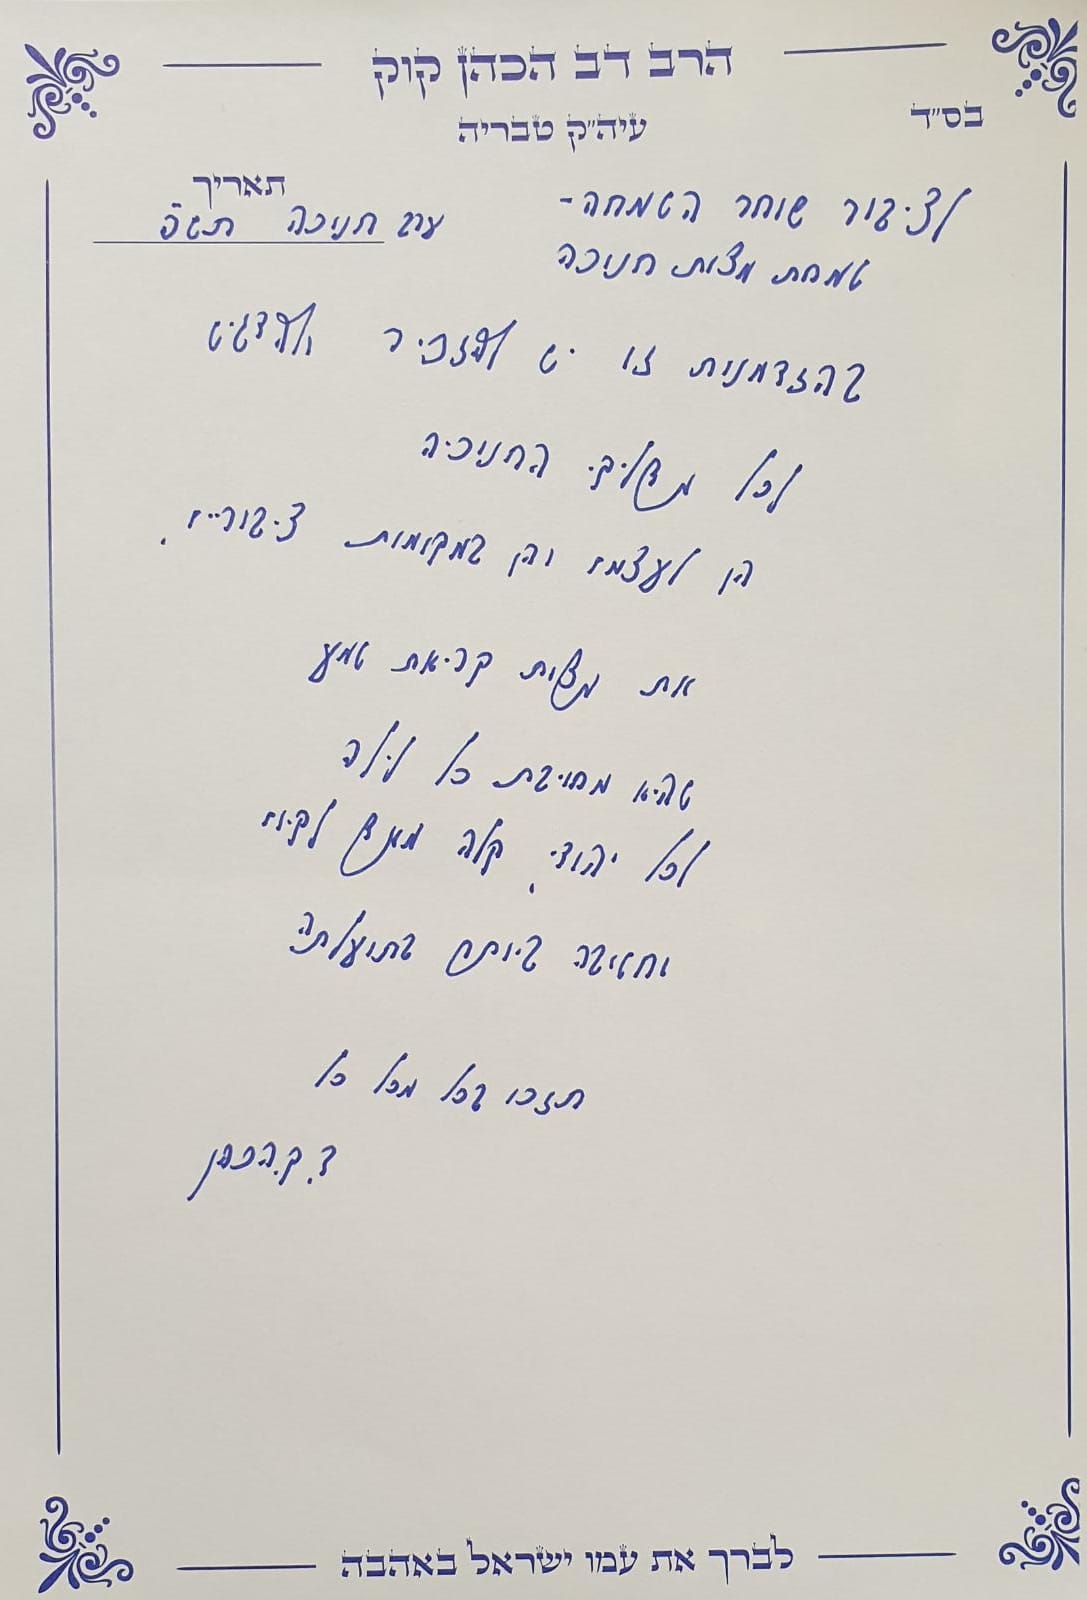 הרב דב הכהן קוק
עיה"ק טבריה
בס"ד
תאריך
ערב חנוכה תש"פ
לציבור שוחר השמחה-
שמחת מצות חנוכה
בהזדמנות זו יש להזכיר ולהדגיש
לכל מדליקי החנוכיה
הן לעצמו והן במקומות ציבוריי,
את מצות קריאת שמע
שהיא מחויבת כל לילה
לכל יהודי, קלה מאד לקיום
וחשובה ביותר בתועלתה
תזכו בכל מכל כל
ד.ק.הכהן
לברך את עמו ישראל באהבה